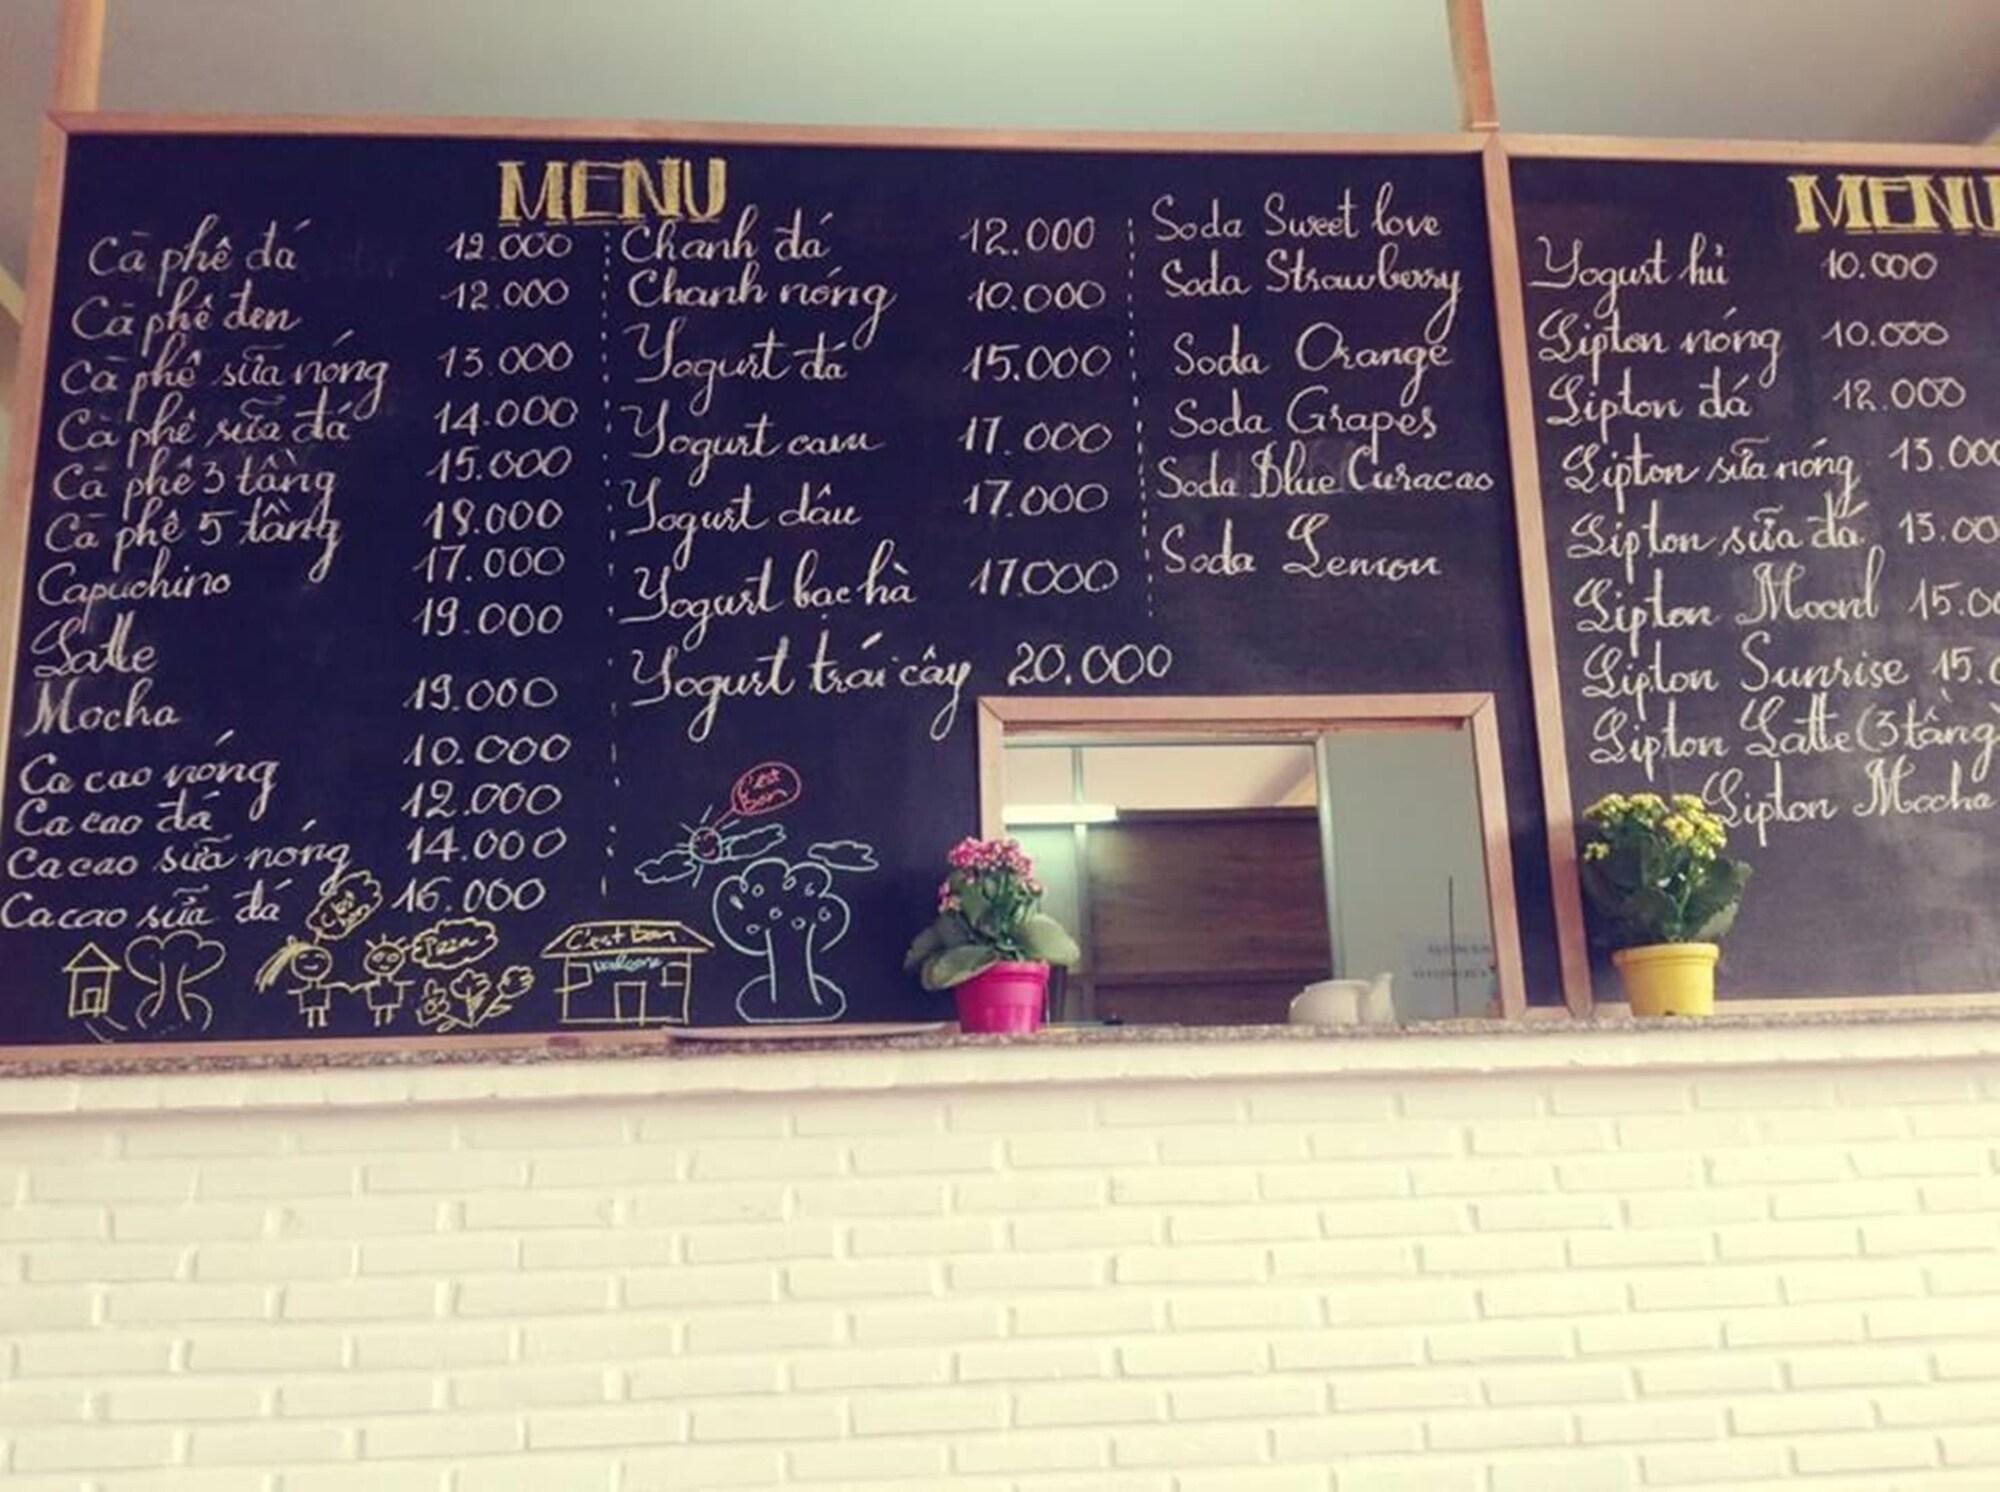 MENU
Cà phê đá 12.000
Cà phê đen 12.000
Cà phê sữa nóng 13.000
Cà phê sữa đá 14.000
Cà phê 3 tầng 15.000
Cà phê 5 tầng 18.000
Capuchino 17.000
Latte 19.000
Mocha 19.000
Ca cao nóng 10.000
Ca cao đá 12.000
Ca cao sữa nóng 14.000
Ca cao sữa đá 16.000
Chanh đá 12.000
Chanh nóng 10.000
Yogurt đá 15.000
Yogurt cam 17.000
Yogurt dâu 17.000
Yogurt bạc hà 17.000
Yogurt trái cây 20.000
Soda Sweet love
Soda Strawberry
Soda Orange
Soda Grapes
Soda Blue Curacao
Soda Lemon
C'est
bon
C'est
bon
Pizza
C'est bon
welcome
MENU
Yogurt hủ 10.000
Lipton nóng 10.000
Lipton đá 12.000
Lipton sữa nóng 13.000
Lipton sữa đá 15.00
Lipton 15.00
Lipton Sunrise 15.0
Lipton Latte (3 tầng)
Lipton Mocha